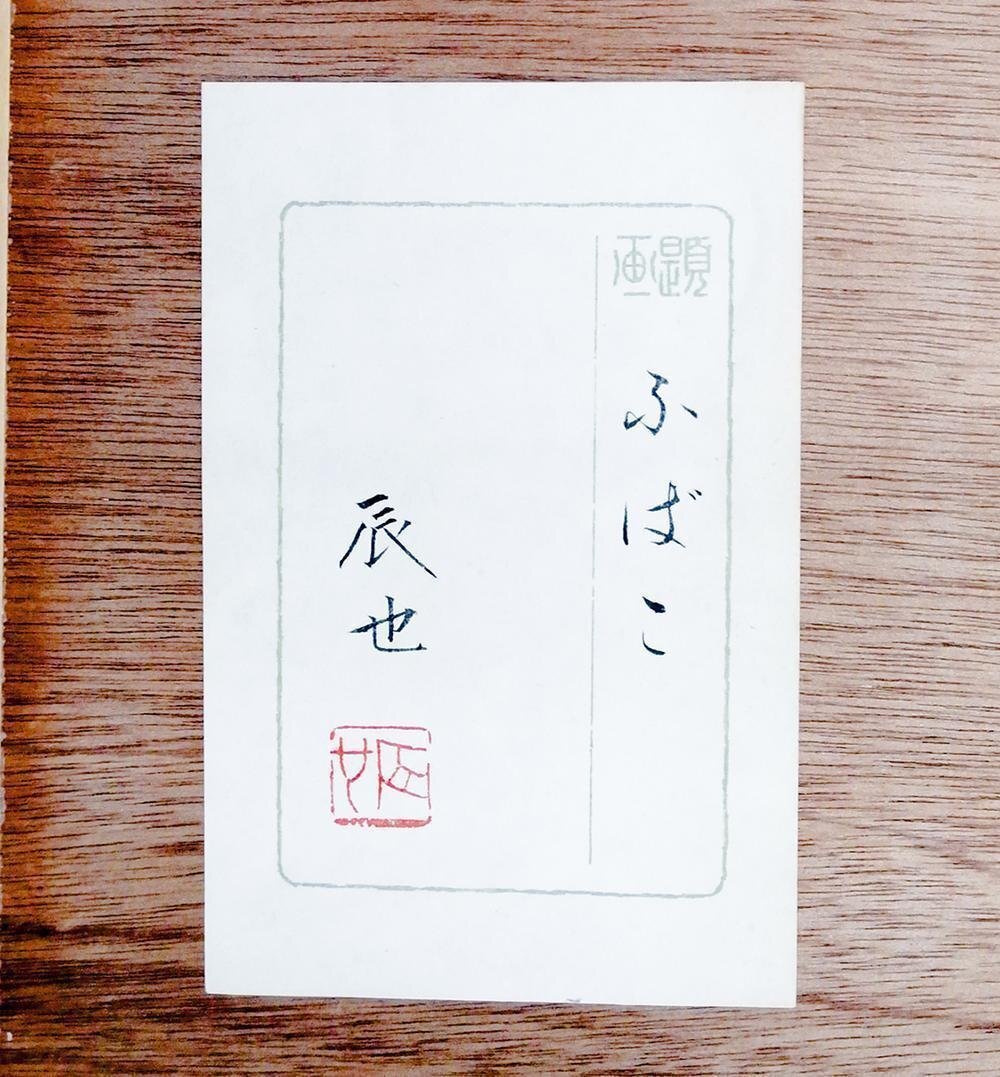 画題
ふばこ
辰也